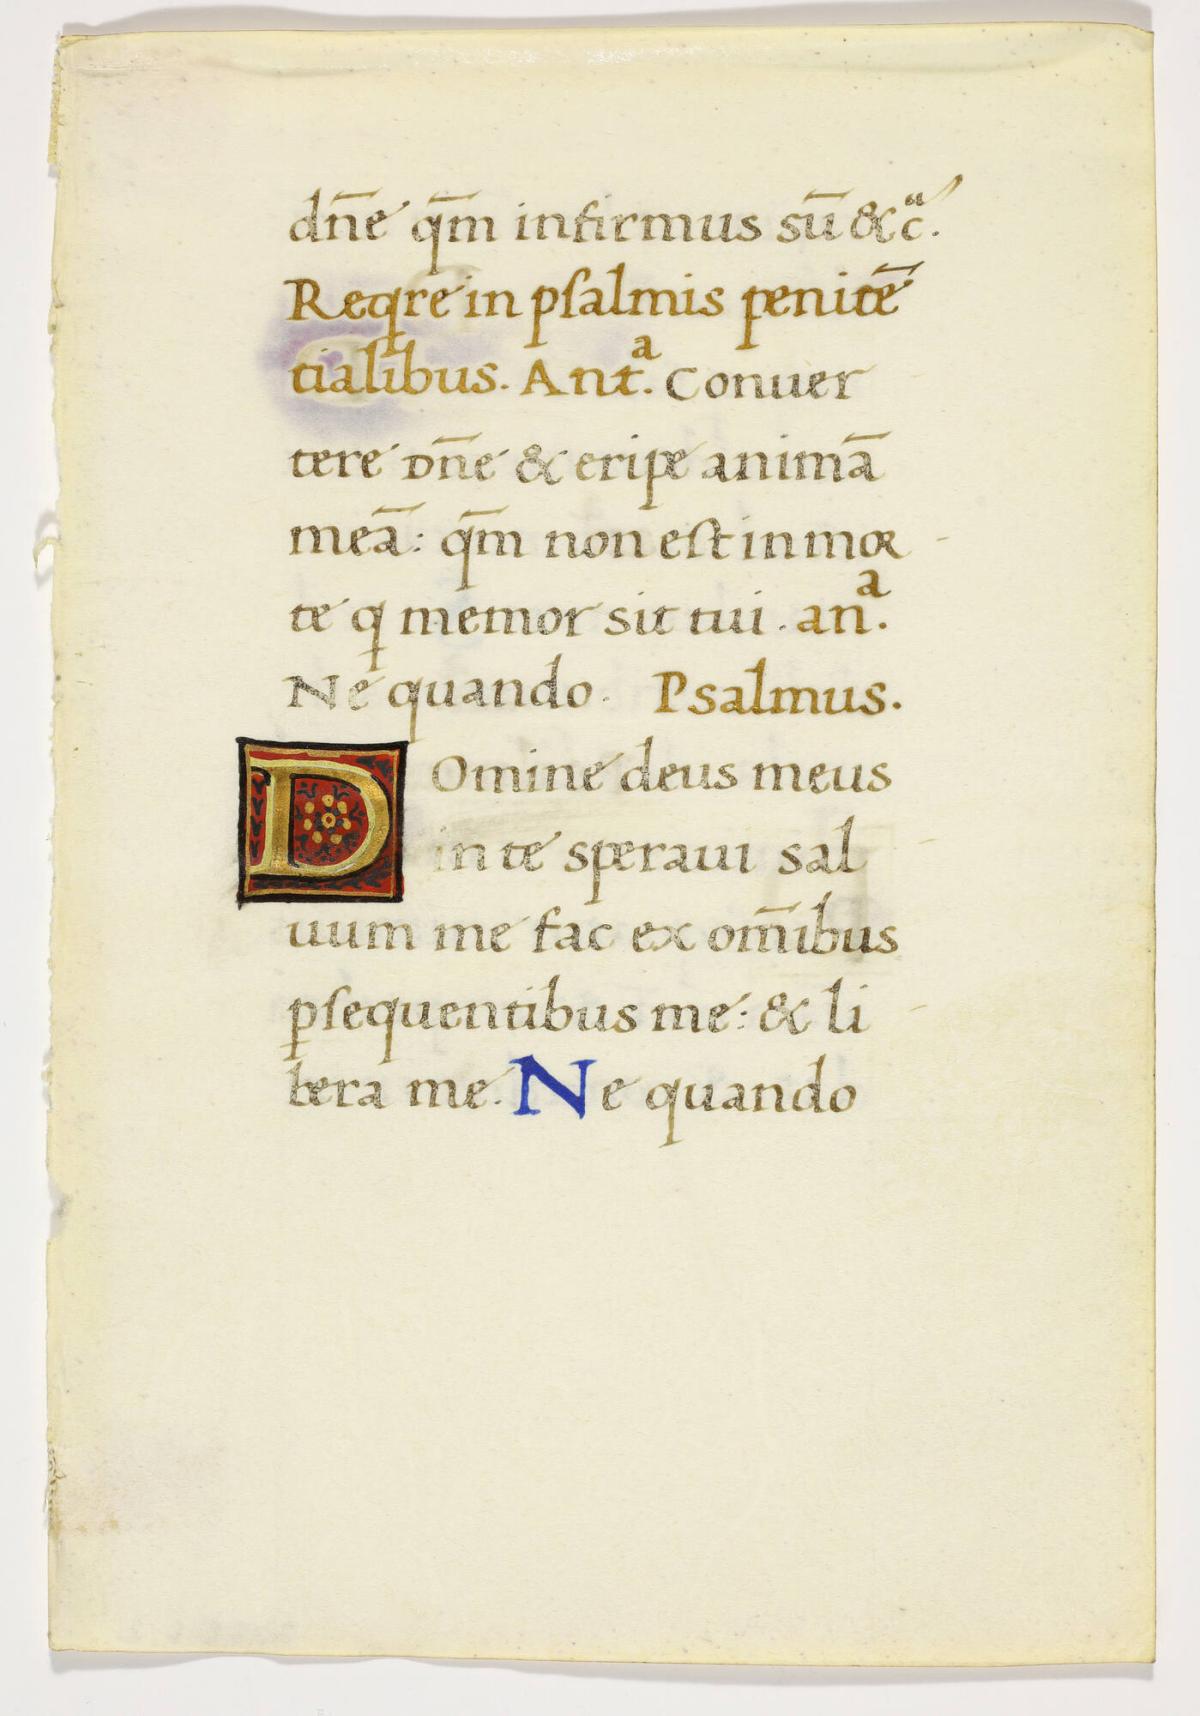 dn̄e q̄m infirmus sū &cᵃ.
Reqre in pſalmis penitē
tialibus. Antᵃ. Conuer
tere Dn̄e & eripe animā
meā: q̄m non eſt in mor
te q memor sit tui. anᵃ.
Ne quando. Psalmus.
DOmine deus meus
in te speraui sal
uum me fac ex om̄ibus
pſequentibus me: & li
bera me. Ne quando